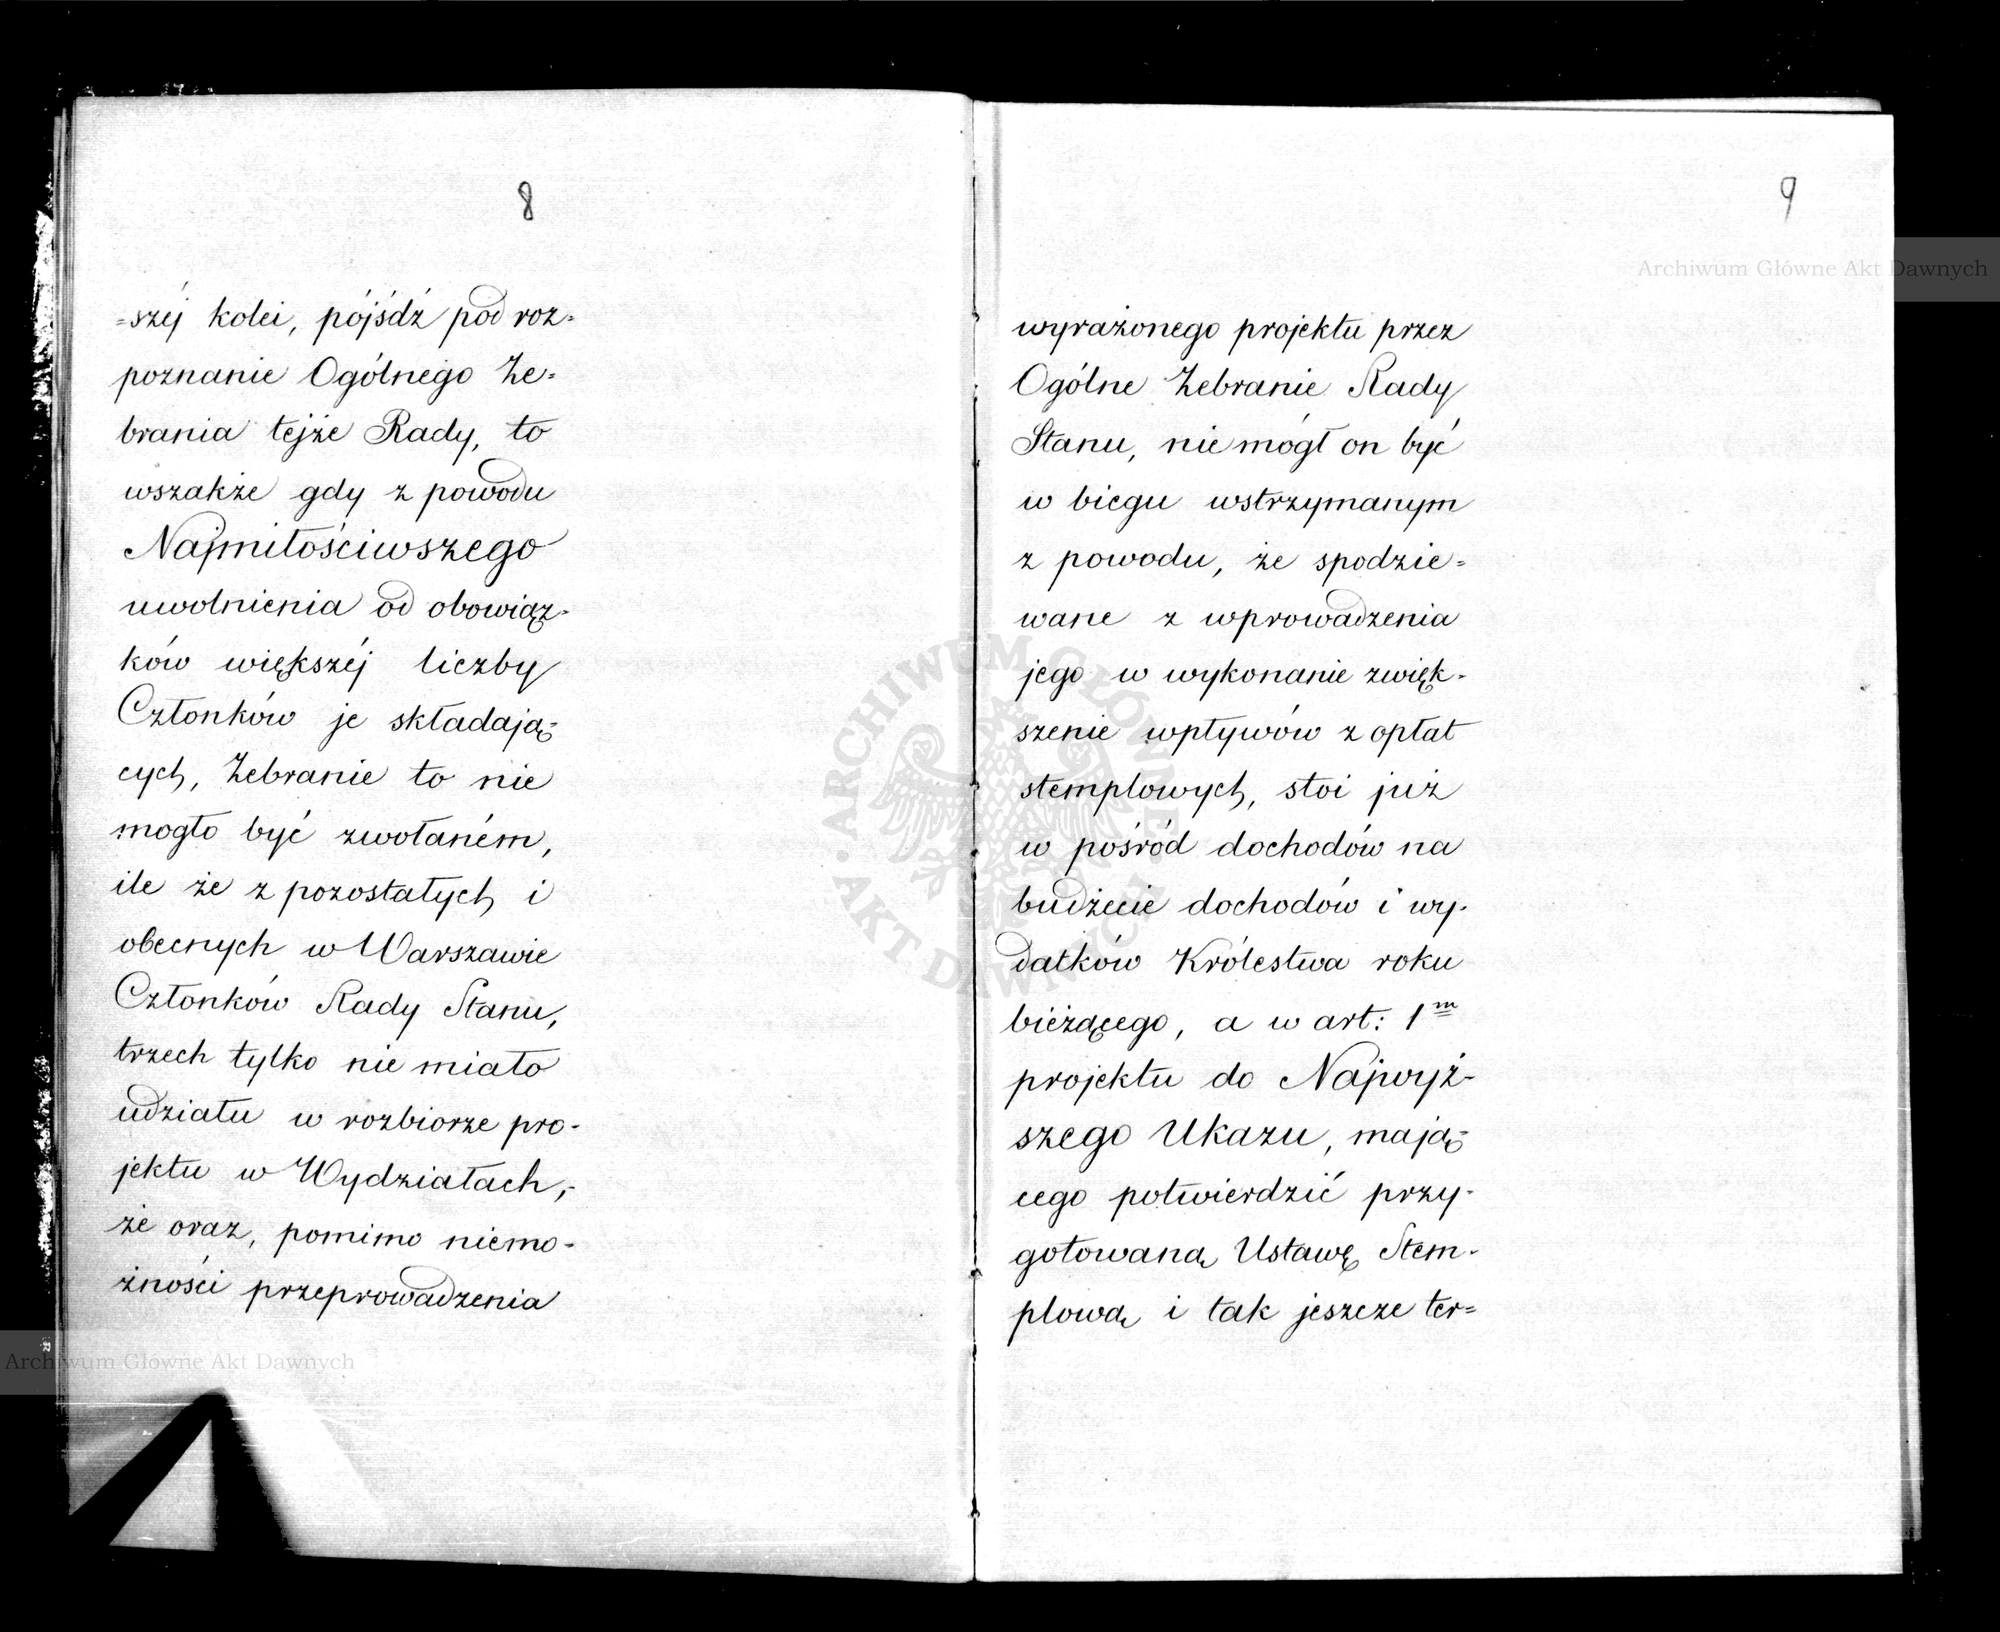 8
=széj kolei, pójśdź pod roz=
poznanie Ogólnego Ze=
brania tejże Rady, to
wszakże gdy z powodu
Najmiłościwszego
uwolnienia od obowiąz-
ków większéj liczby
Członków je składają-
cych, Zebranie to nie
mogło być zwołaném,
ile że z pozostałych i
obecnych w Warszawie
Członków Rady Stanu,
trzech tylko nie miało
udziału w rozbiorze pro-
jektu w Wydziałach,-
że oraz, pomimo niemo-
żności przeprowadzenia
9
wyrażonego projektu przez
Ogólne Zebranie Rady
Stanu, nie mógł on być
w biegu wstrzymanym
z powodu, że spodzie=
wane z wprowadzenia
jego w wykonanie zwięk-
szenie wpływów z opłat
stemplowych, stoi już
w pośród dochodów na
budżecie dochodów i wy-
datków Królestwa roku
bieżącego, a w art: 1m
projektu do Najwyż-
szego Ukazu, mają-
cego potwierdzić przy-
gotowaną Ustawę Stem-
plową i tak jeszcze ter=
Archiwum Główne Akt Dawnych
Archiwum Główne Akt Dawnych
ARCHIWUM GŁÓWNE AKT DAWNYCH